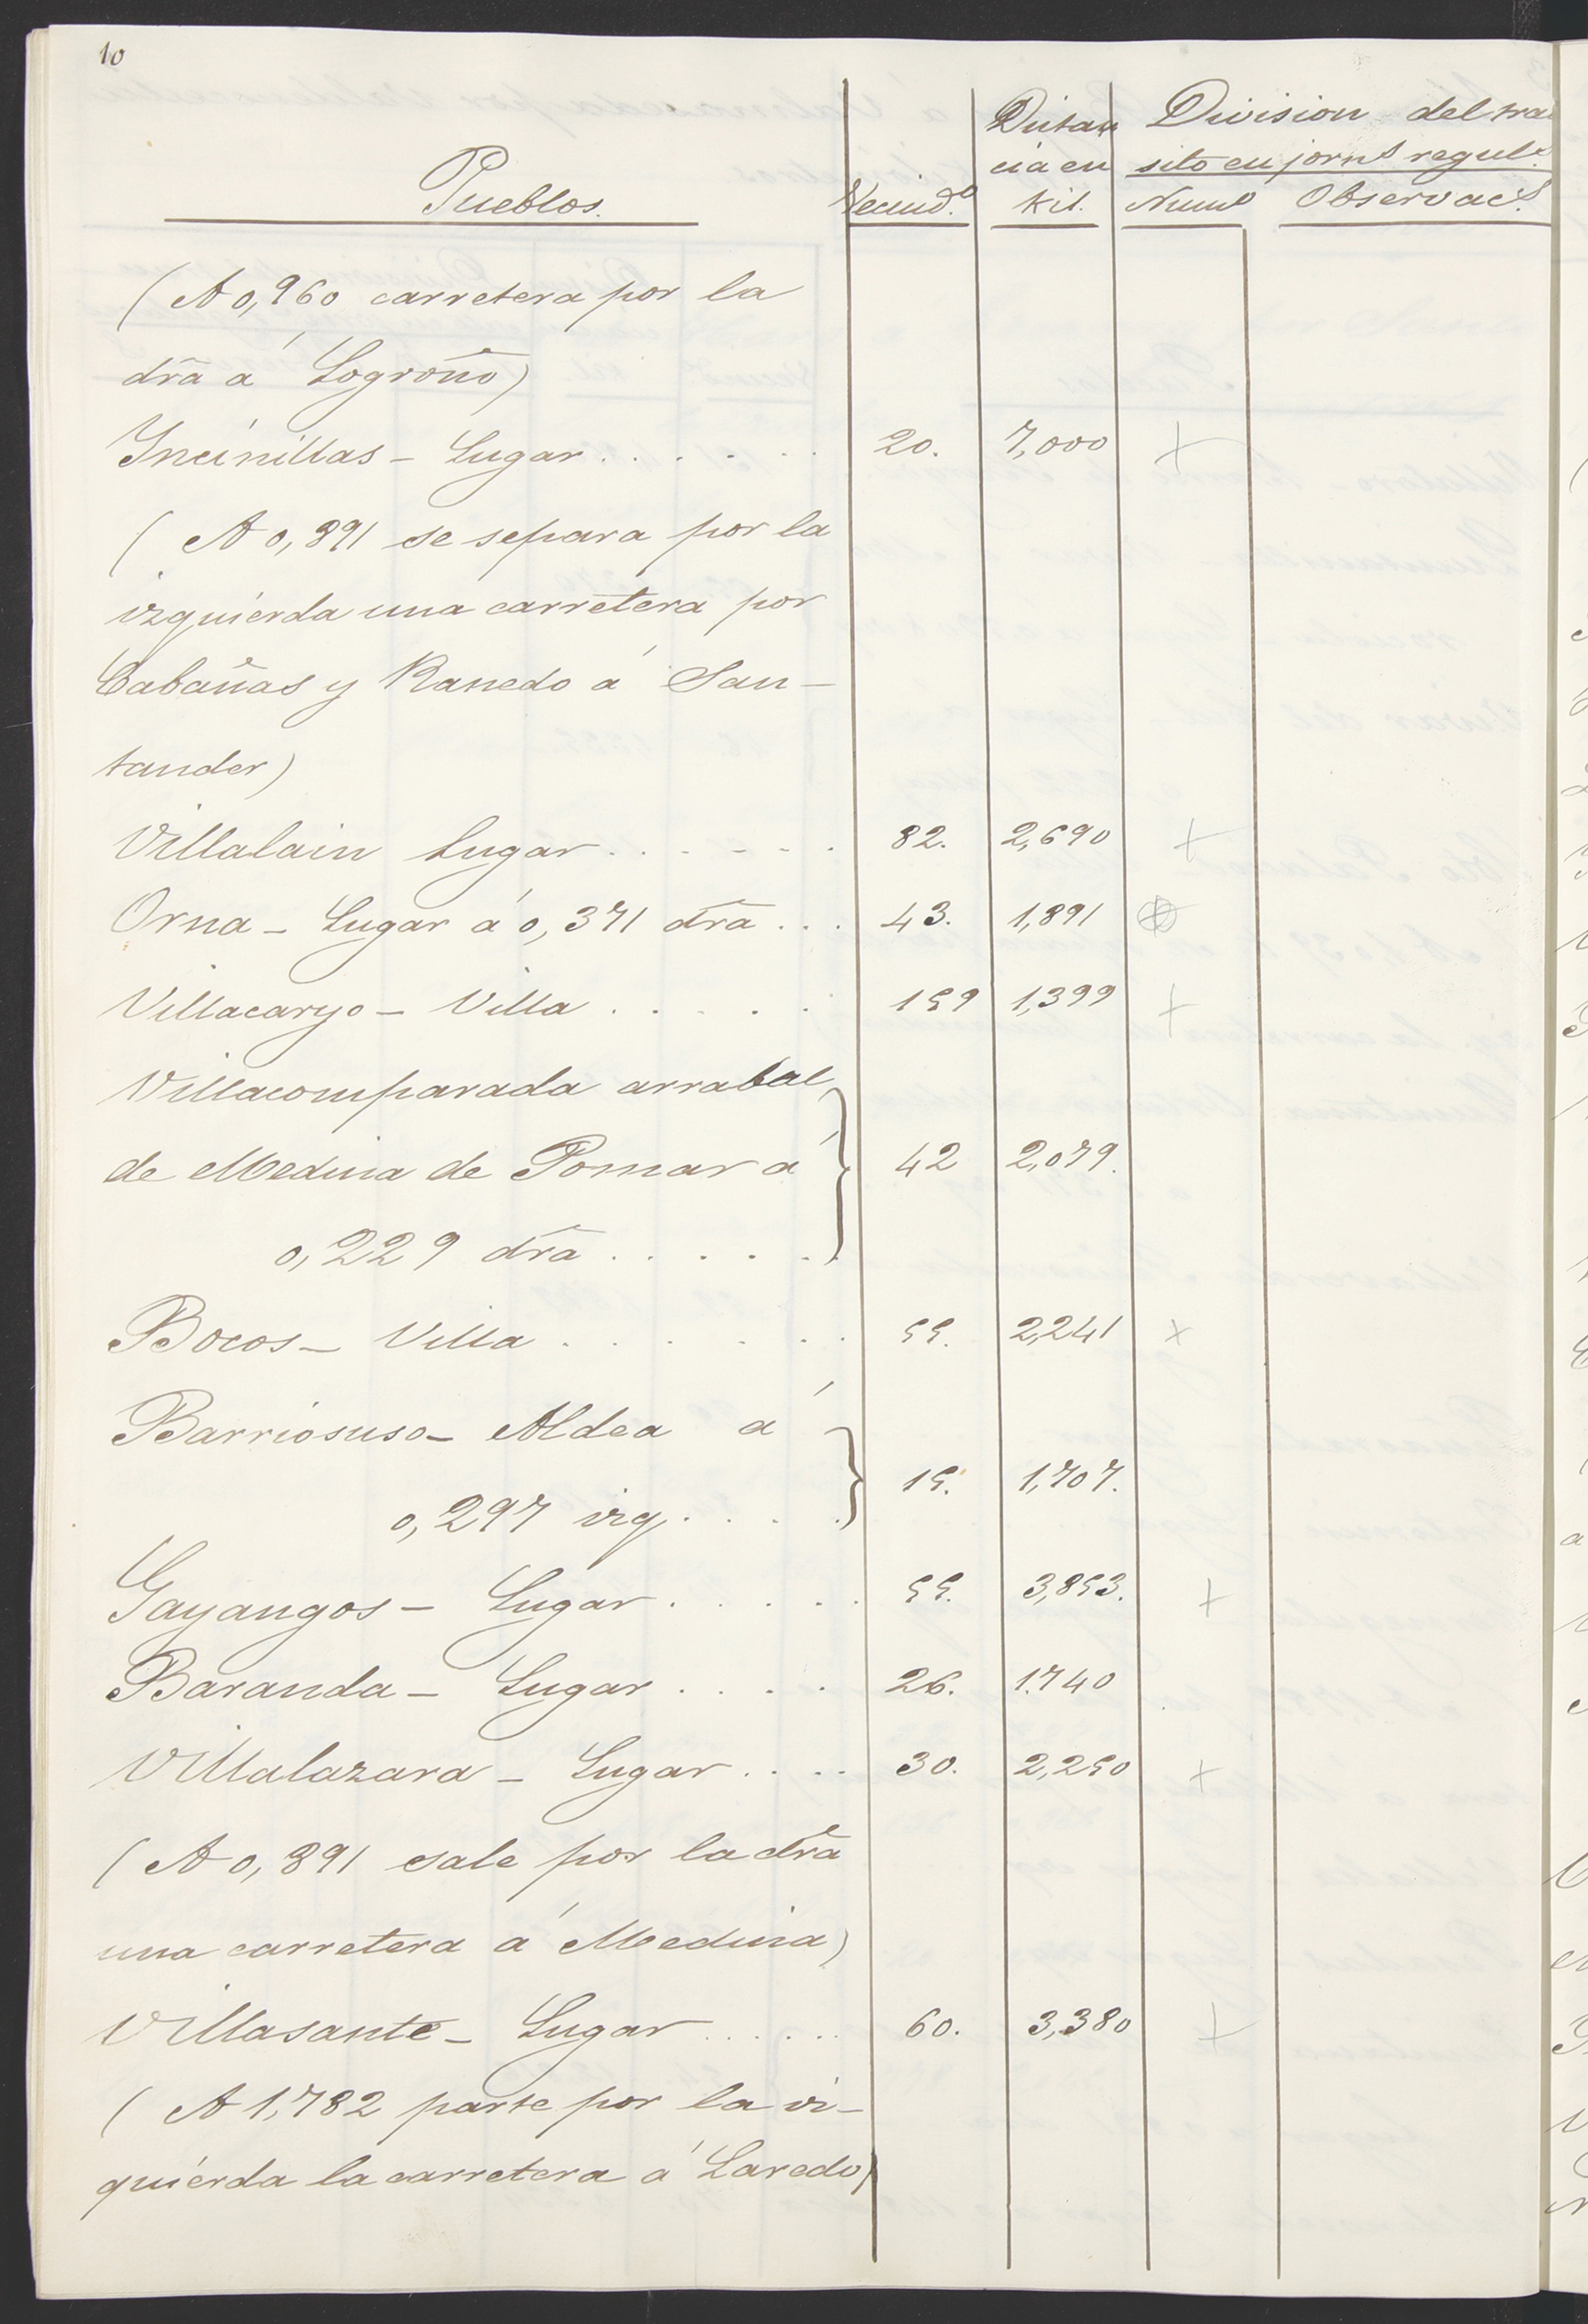 10
Pueblos.
Vecind.º
Distan
cia en
Kil.
Division del tran
sito en jorn.s regul.s
Num.º
Observac.s
(A 0,960 carretera por la
dr̃a á Logroño)
Yncinillas - Lugar . . . . . . 20. 7,000 +
( A 0,891 se separa por la
izquierda una carretera por
Cabañas y Ranedo á San-
tander)
Villalain Lugar . . . . . . 82. 2,690 +
Orna - Lugar á 0,371 dr̃a . . . 43. 1,891
Villacaryo - Villa . . . . . 159 1,399 +
Villacomparada arrabal
de Medina de Pomar á 42 2,079.
0,229 dr̃a . . . . .
Bocos - Villa . . . . . . 55. 2,241 x
Barriosuso - Aldea á
0,297 izq. . . . . 15. 1,707.
Gayangos - Lugar . . . . . 55. 3,853. +
Baranda - Lugar . . . . 26. 1.740
Villalazara - Lugar . . . . 30. 2,250 +
( A 0,891 sale por la dr̃a
una carretera á Medina)
Villasante - Lugar . . . . . 60. 3,380 +
( A 1,782 parte por la iz-
quierda la carretera á Laredo)